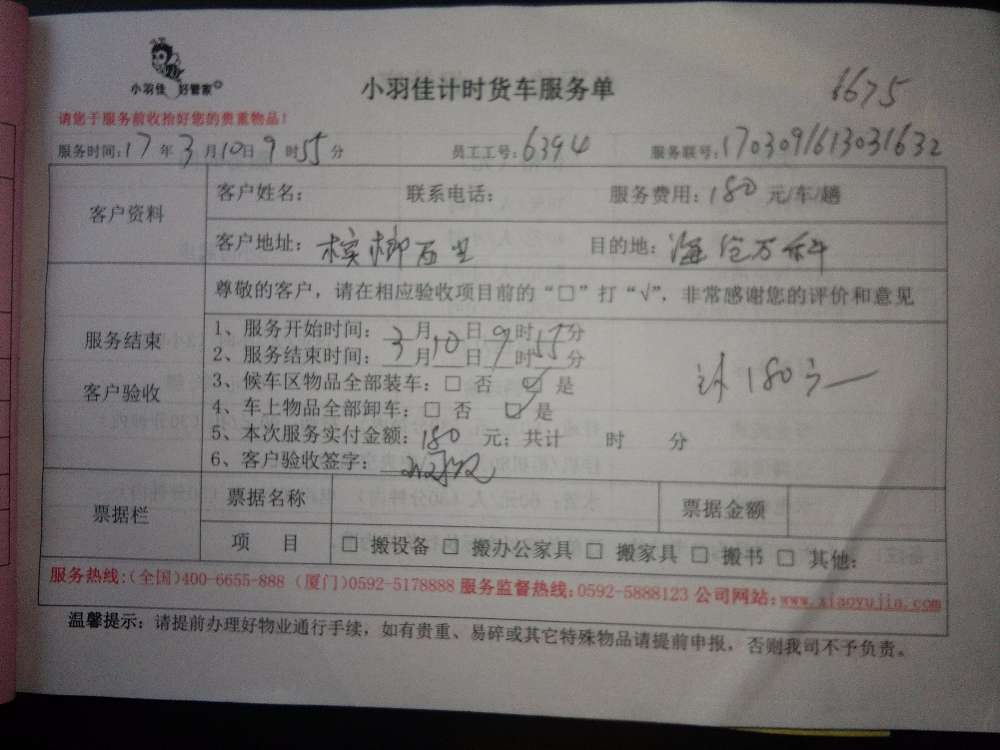 小羽佳 好管家
小羽佳计时货车服务单
6675
请您于服务前收拾好您的贵重物品!
服务时间:17年3月10日9时55分 员工工号:6394 服务联号:170309161303163 2
客户资料
客户姓名: 联系电话: 服务费用:180元/车/趟
客户地址:槟榔西里 目的地:海沧万科
服务结束
客户验收
尊敬的客户,请在相应验收项目前的“□”打“√”,非常感谢您的评价和意见
1、服务开始时间:3月10日9时55分
2、服务结束时间:3月10日9时55分
3、候车区物品全部装车:□ 否 ☑ 是
4、车上物品全部卸车:□ 否 ☑ 是
5、本次服务实付金额:180元;共计 时 分
6、客户验收签字:
计180元
票据栏
票据名称 票据金额
项 目 □ 搬设备 □ 搬办公家具 □ 搬家具 □ 搬书 □ 其他:
服务热线:(全国)400-6655-888 (厦门)0592-5178888 服务监督热线:0592-5888123 公司网站:www.xiaoyujia.com
温馨提示:请提前办理好物业通行手续,如有贵重、易碎或其它特殊物品请提前申报,否则我司不予负责。